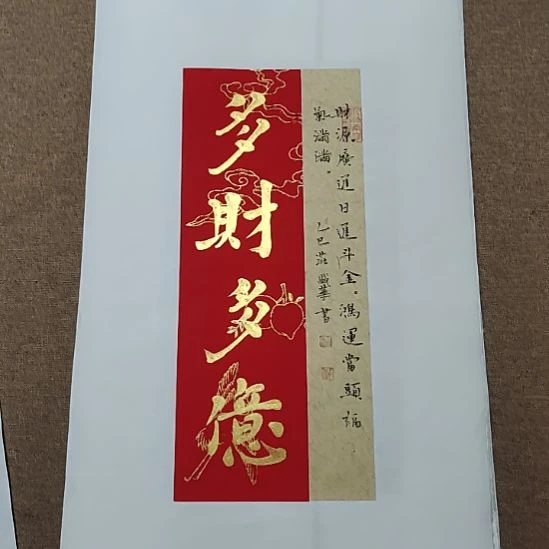 多財多億
財源廣進日進斗金。鴻運當頭福
氣滿滿。
乙巳莊 華書